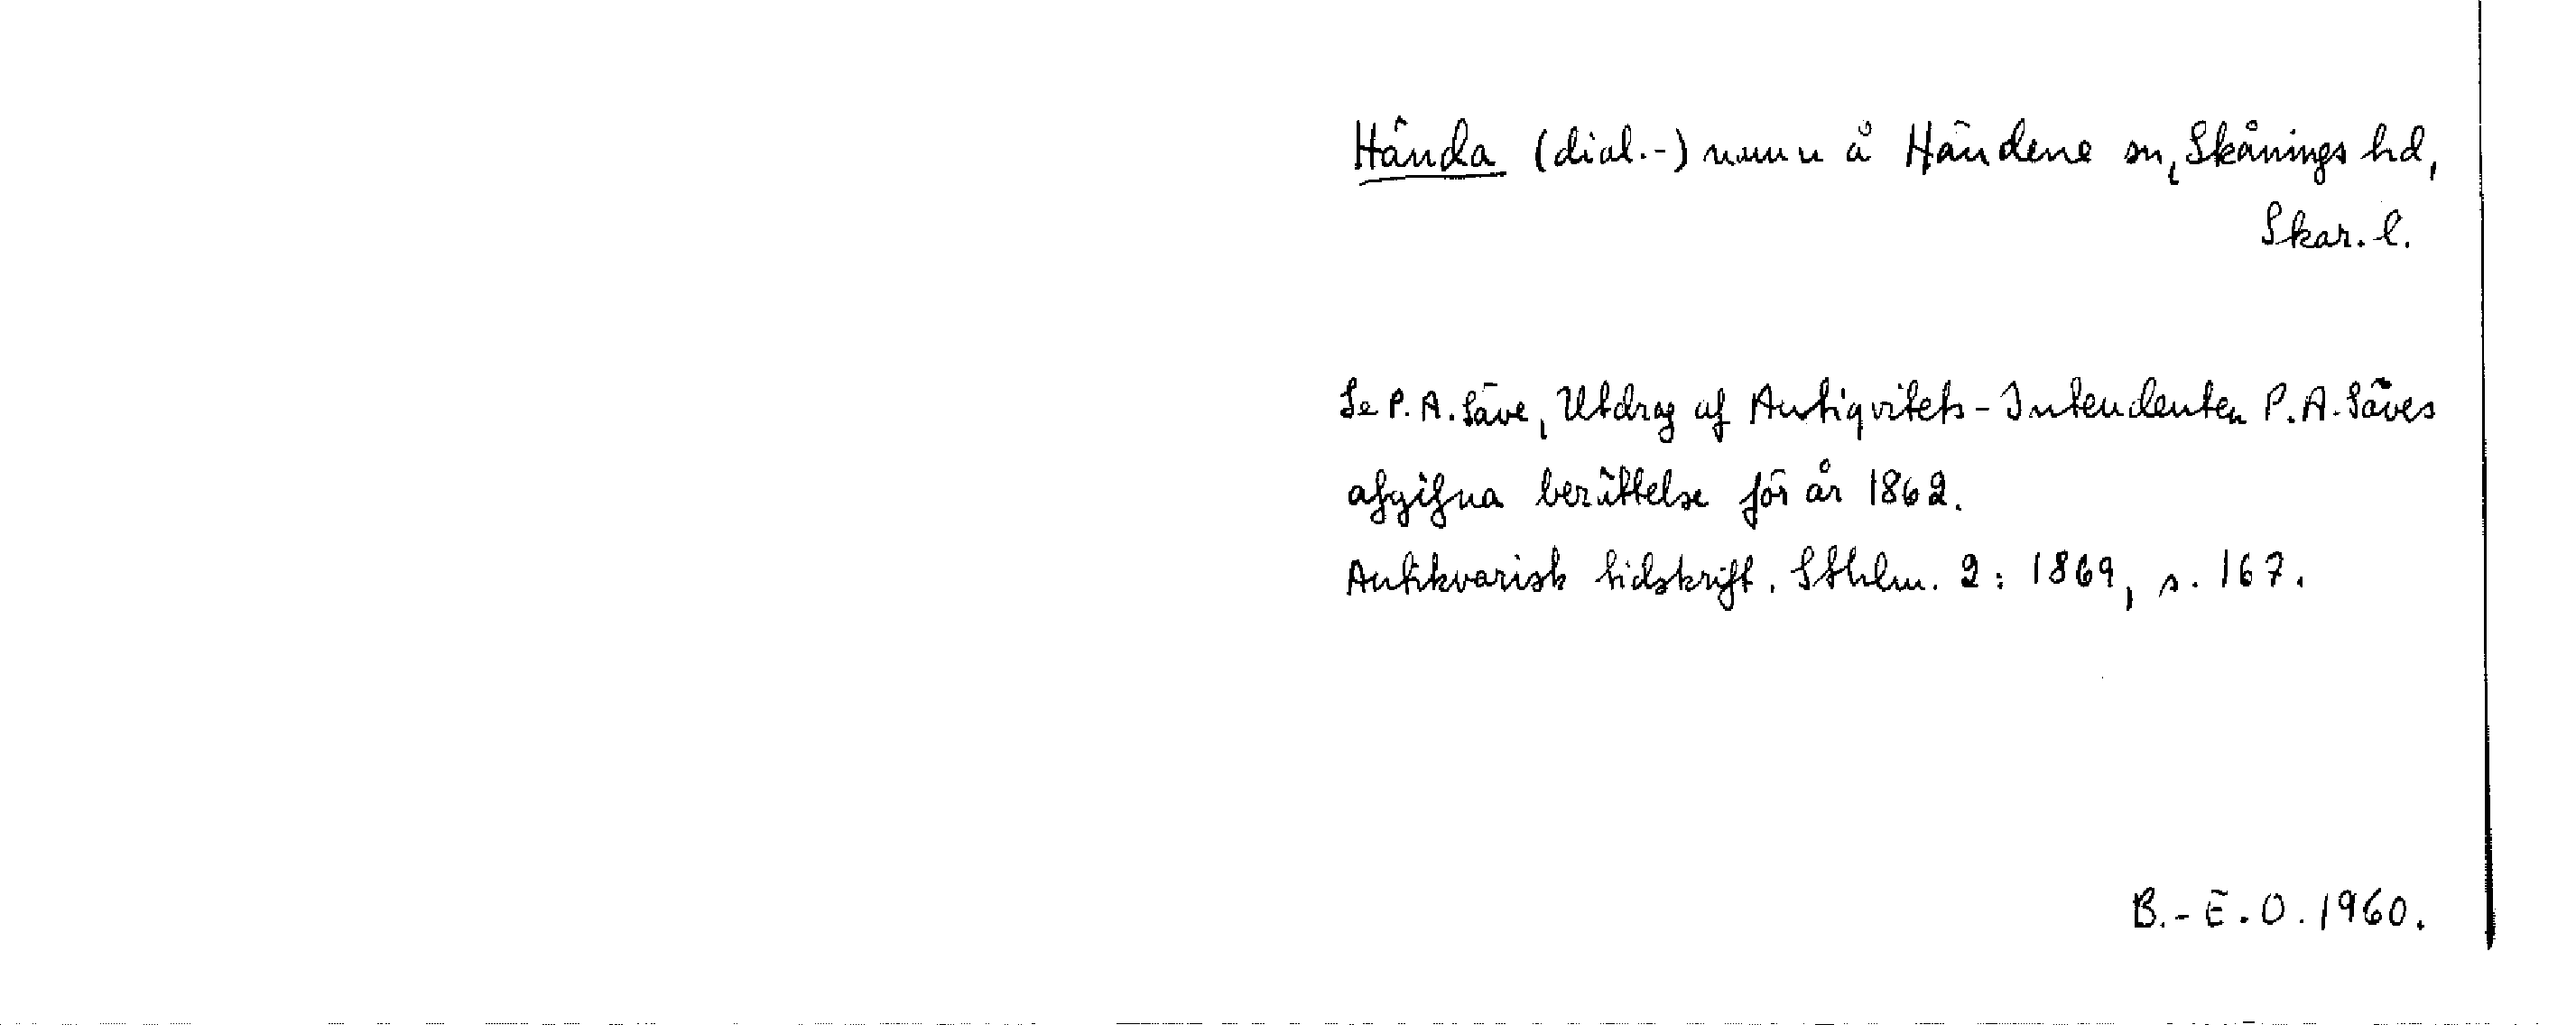 Hända (dial.-) namn å Händene sn, Skånings hd,
Skar. l.
Se P. A. Säve, Utdrag af Antiqvitets-Intendenten P. A. Säves
afgifna berättelse för år 1862.
Antikvarisk tidskrift. Sthlm. 2: 1869, s. 167.
B.-E. O. 1960.